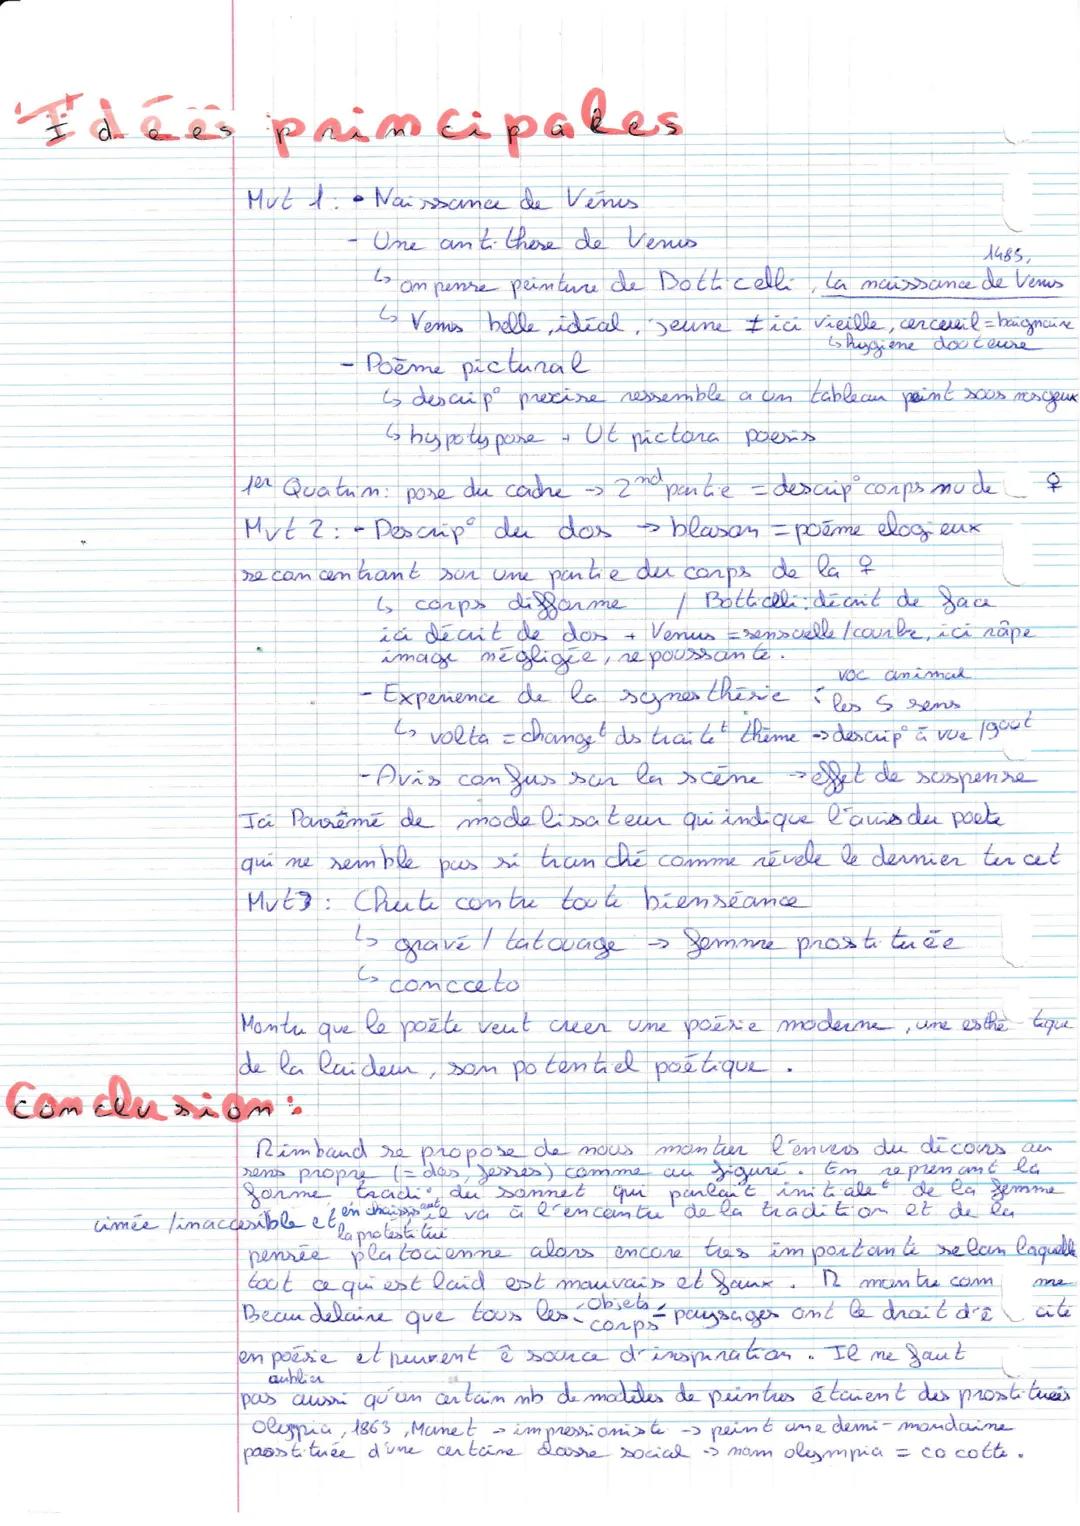 Idées principales
Mvt 1 : • Naissance de Vénus
- Une antithèse de Venus
1485,
↳ on pense peinture de Botticelli, La naissance de Venus
↳ Venus belle, idéal, jeune ≠ ici vieille, cercueil = baignoire
↳ hygiène douteuse
- Poème pictural
↳ descrip° precise ressemble a un tableau peint sous nos yeux
↳ hypotypose + Ut pictora poesis
1er Quatrin : pose du cadre → 2nd partie = descrip° corps nu de ♀
Mvt 2 : - Descrip° du dos → blason = poème elogieux
se concentrant sur une partie du corps de la ♀
↳ corps difforme / Botticelli : décrit de face
ici décrit de dos + Venus = sensuelle / courbe, ici râpe
image négligée, repoussante.
voc animal
- Experience de la synesthésie : les 5 sens
↳ volta = changet ds traitet thème → descrip° à vue / gout
- Avis confus sur la scène → effet de suspense
Ici Parsêmé de modelisateur qui indique l'avis du poete
qui ne semble pas si tranché comme révele le dernier tercet
Mvt 3 : Chute contre toute bienséance
↳ gravé / tatouage → femme prostituée
↳ concceto
Montre que le poète veut creer une poésie moderne, une esthé tique
de la laideur, son potentiel poétique.
Conclusion :
Rimbaud se propose de nous montrer l'envers du décors au
sens propre (= dos, fesses) comme au figuré. En reprenant la
forme tradi° du sonnet qui parlait initialet de la femme
aimée / inaccesible et en choisissant il va à l'encontre de la tradition et de la
la protestitué
pensée platocienne alors encore très importante selon laquelle
tout ce qui est laid est mauvais et faux. Il montre com me
Beaudelaire que tous les objets - paysages ont le droit d'ê cité
corps
en poésie et peuvent ê source d'inspiration. Il ne faut
oublier
pas aussi qu'un certain nb de modèles de peintres étaient des prostituées
Olympia, 1863, Manet → impressioniste → peint une demi-mondaine
prostituée d'une certaine classe social → nom olympia = cocotte.